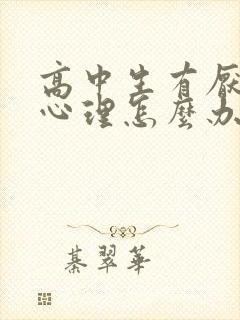 高中生有厭
心理怎麼办
綦翠華